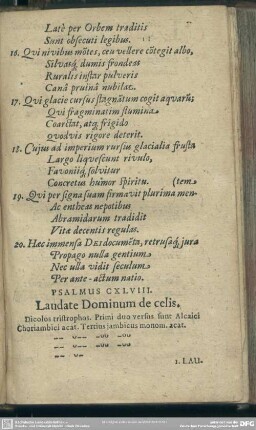 Latè per Orbem traditis
Sunt obsecuti legibus.
16. Qvi nivibus mõtes, ceu vellere cõtegit albo,
Silvasq́; dumis frondeas
Ruralis instar pulveris
Canâ pruinâ nubilat.
17. Qvi glacie cursus stagnãtum cogit aqvarũ;
Qvi fragminatim flumina
Coarctat, atq́; frigido
qvodvis rigore deterit.
18. Cujus ad imperium rursus glacialia frusta
Largo liqvescunt rivulo,
Favoniiq́; solvitur
Concretus humor spiritu. (tem
19. Qvi per signa suam firmavit plurima men-
Ac entheas nepotibus
Abramidarum tradidit
Vitæ decentis regulas.
20. Hæc immensa DEI documẽta, retrusaq́; jura
Propago nulla gentium
Nec ulla vidit seculum
Per ante-actum natio.
PSALMUS CXLVIII.
Laudate Dominum de celis.
Dicolos tristrophos. Primi duo versus sunt Alcaici
Choriambici acat. Tertius jambicus monom. acat.
1. LAU.
DFG